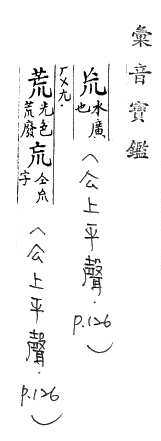 彙音寶鑑
㡃 水廣也 〈公上平聲.p.126〉
ㄏㄨㄤ.
荒 光色荒廢 㡃 仝㡃字 〈公上平聲.p.126〉